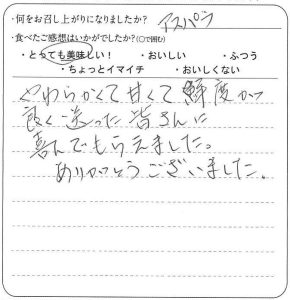 ・何をお召し上がりになりましたか？ アスパラ
・食べたご感想はいかがでしたか？(○で囲む)
・とっても美味しい！ ・おいしい ・ふつう
・ちょっとイマイチ ・おいしくない
やわらかくて甘くて鮮度がつ
良く送った皆さんに
喜んでもらえました。
ありがとうございました。